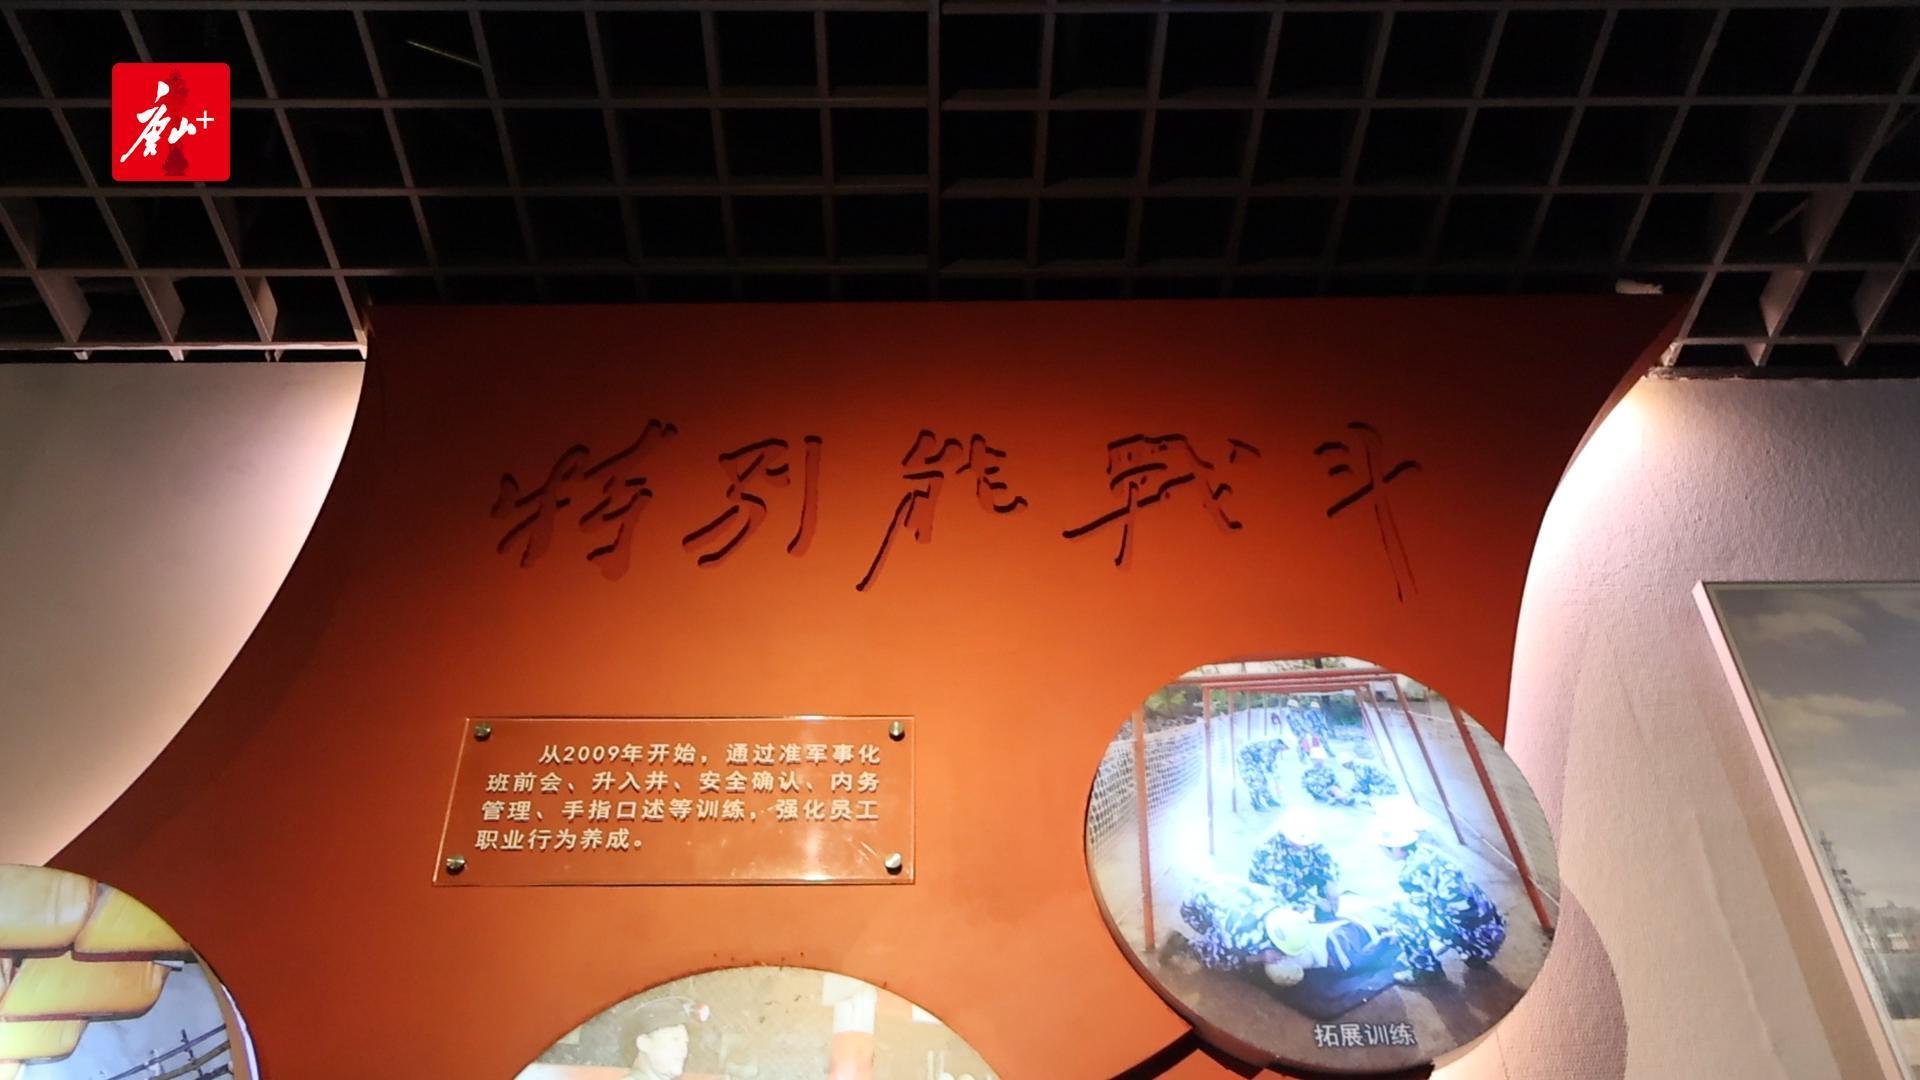 唐山+
特别能戰斗
从2009年开始，通过准军事化
班前会、升入井、安全确认、内务
管理、手指口述等训练，强化员工
职业行为养成。
拓展训练